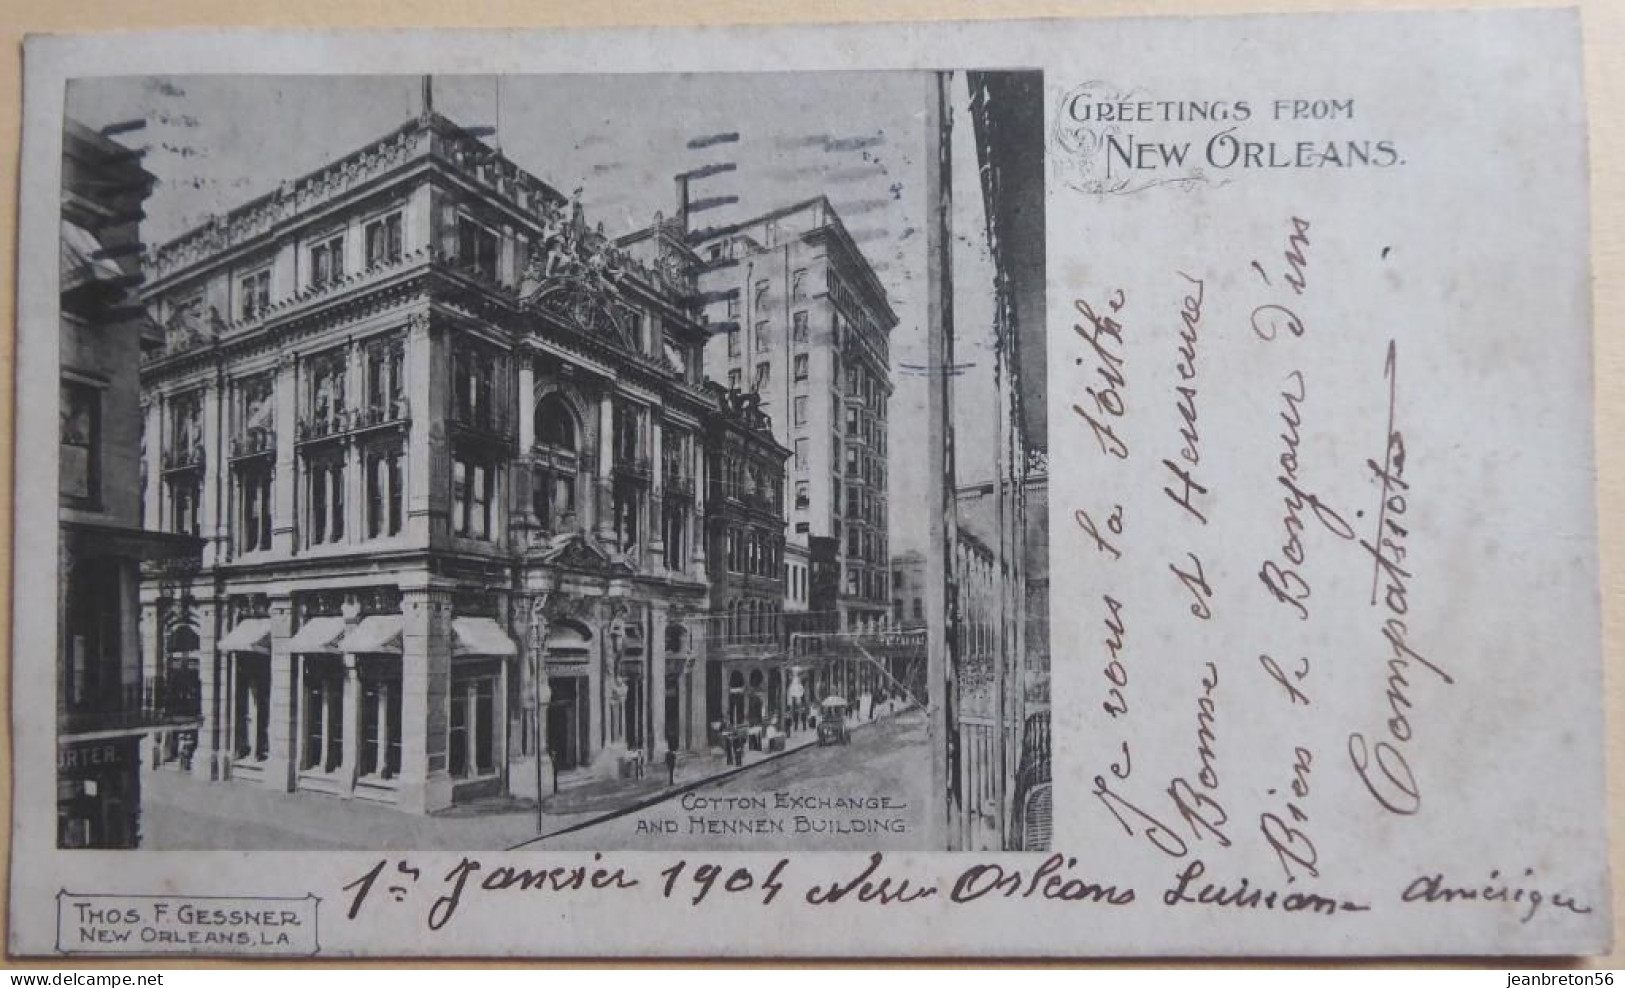 GREETINGS FROM
NEW ORLEANS.
Je vous la souithe
Bonne et Heuseuse
Bien le Bonjour d'un
Compatssiote
ORTER.
COTTON EXCHANGE
AND HENNEN BUILDING.
1er Janvier 1904 New Orléans Luisiane Amérique
THOS. F. GESSNER
NEW ORLEANS, LA
delcampe.net
jeanbreton56